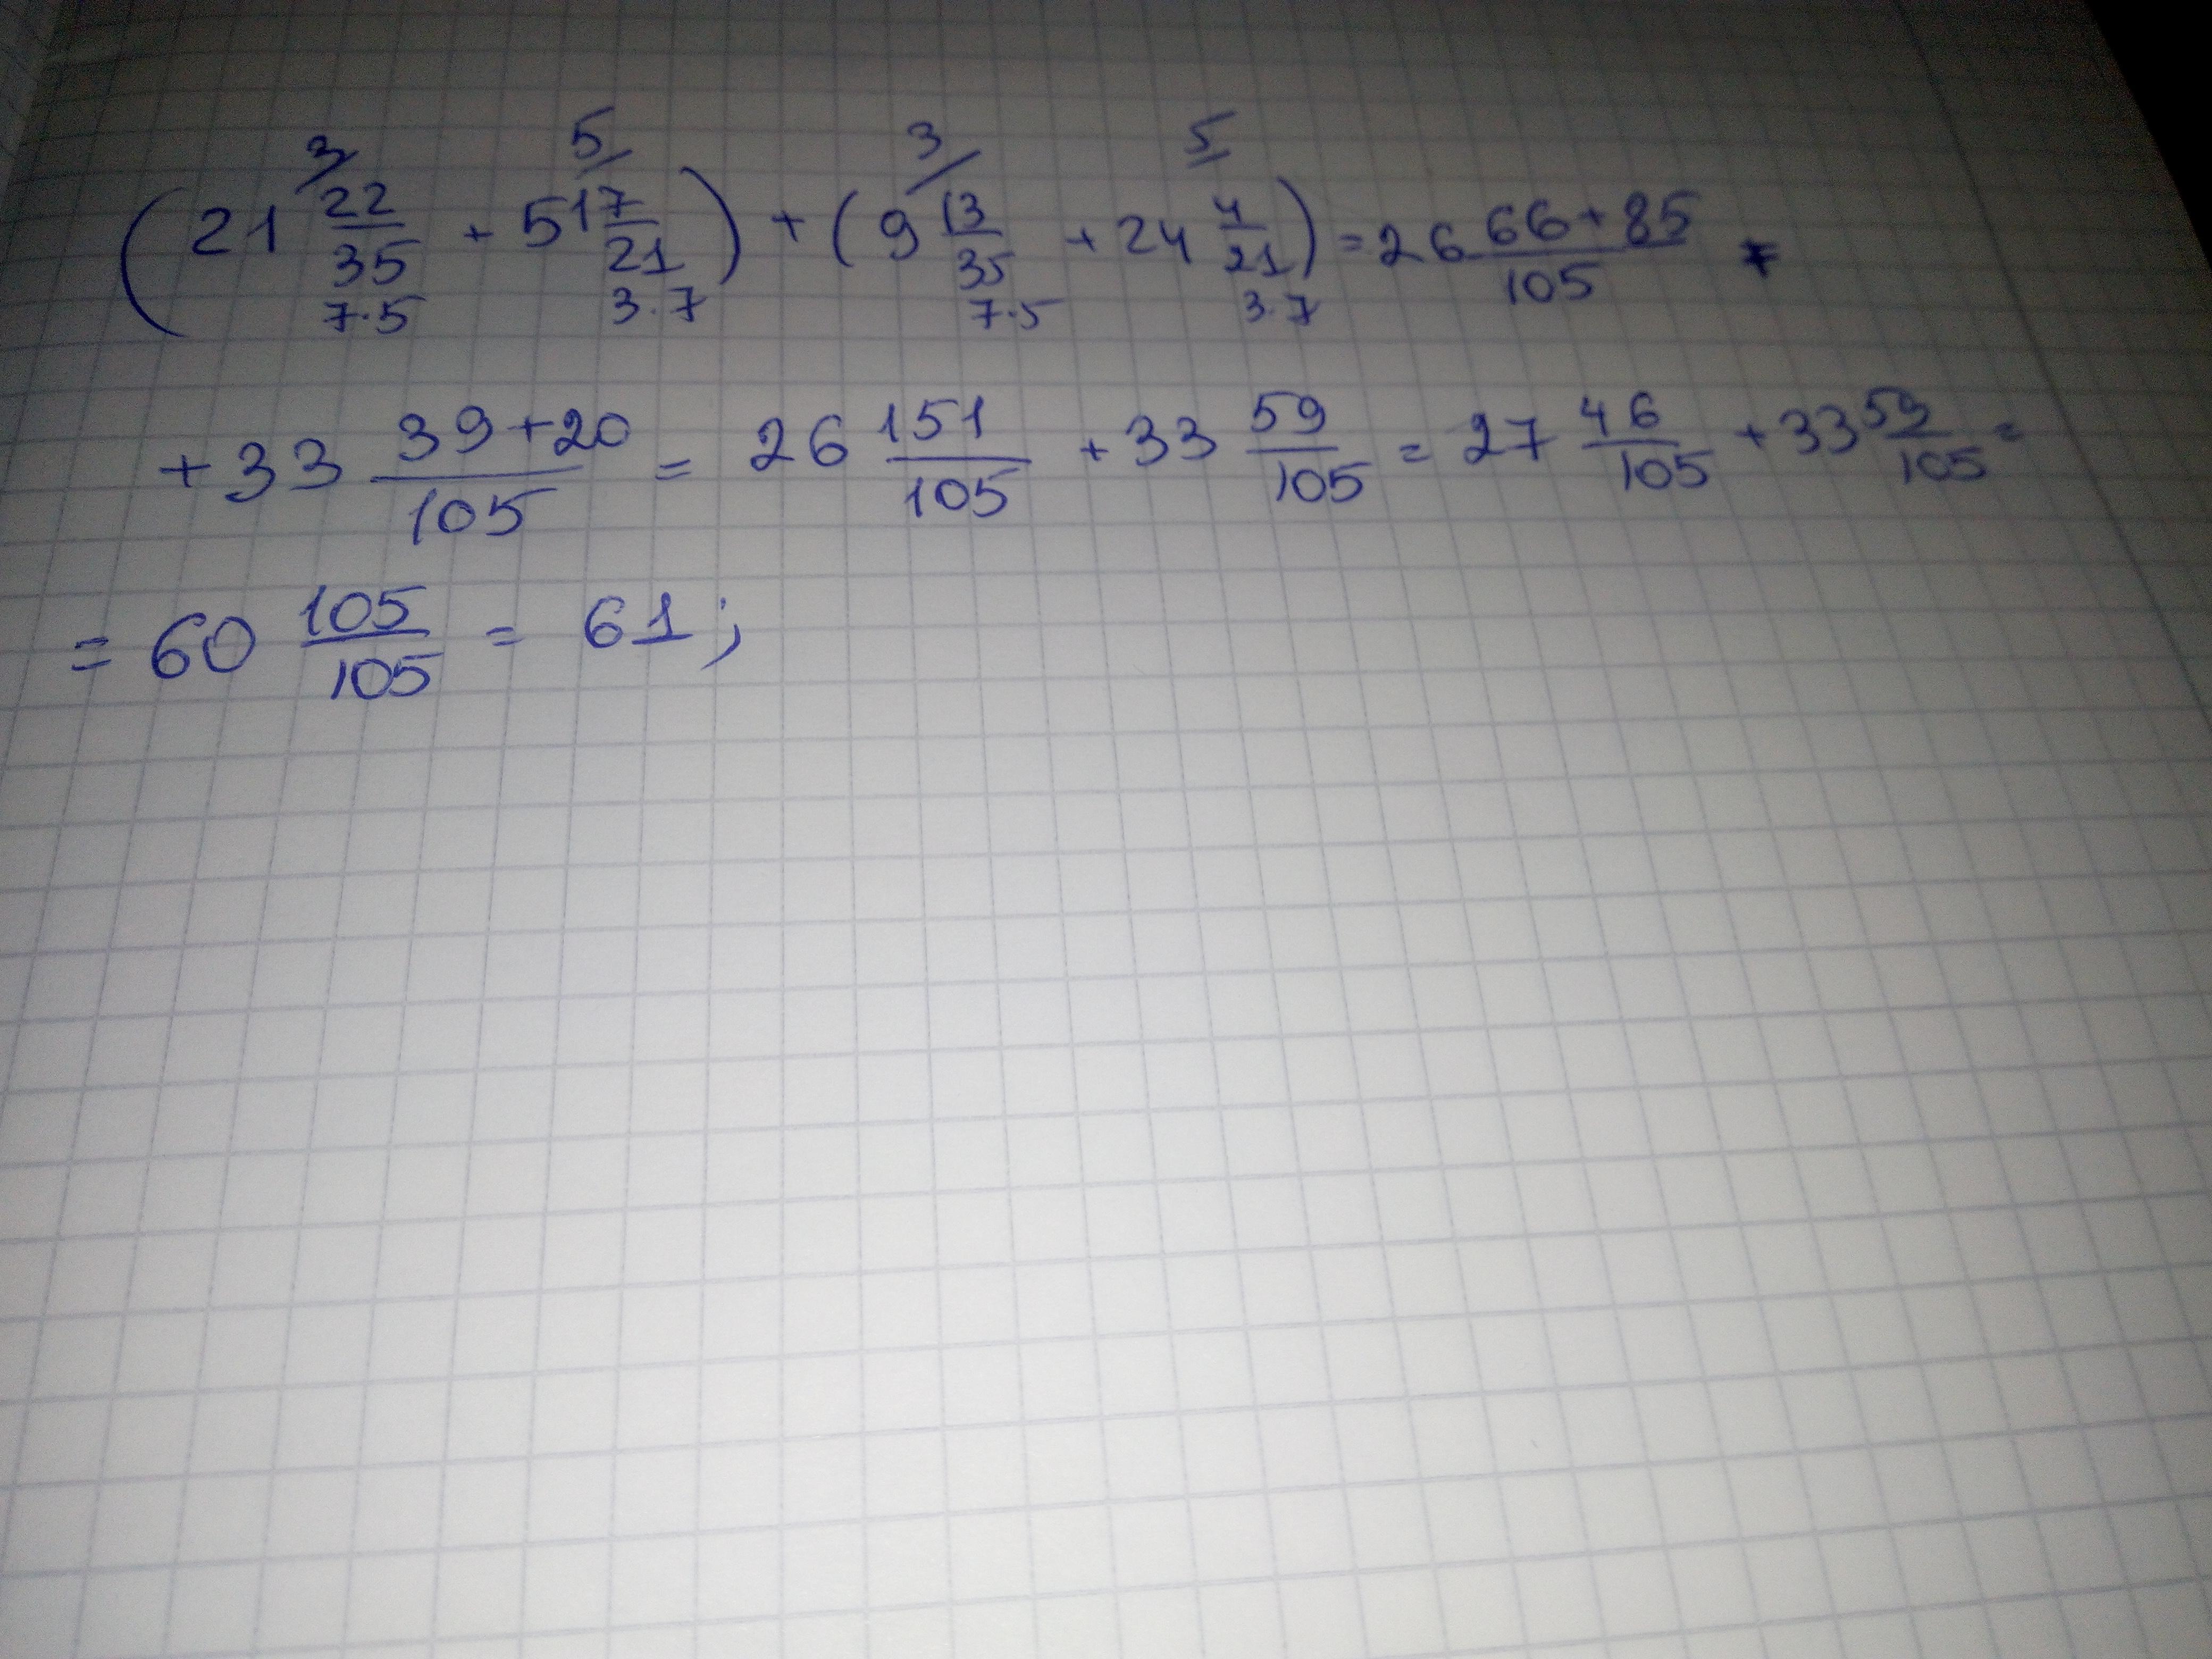 3/ 5/ 3/ 5/
(21 22/35 + 5 17/21) + (9 13/35 + 24 4/21) = 26 66+85/105 +
7·5 3·7 7·5 3·7
+33 39+20/105 = 26 151/105 + 33 59/105 = 27 46/105 + 33 59/105 =
= 60 105/105 = 61;